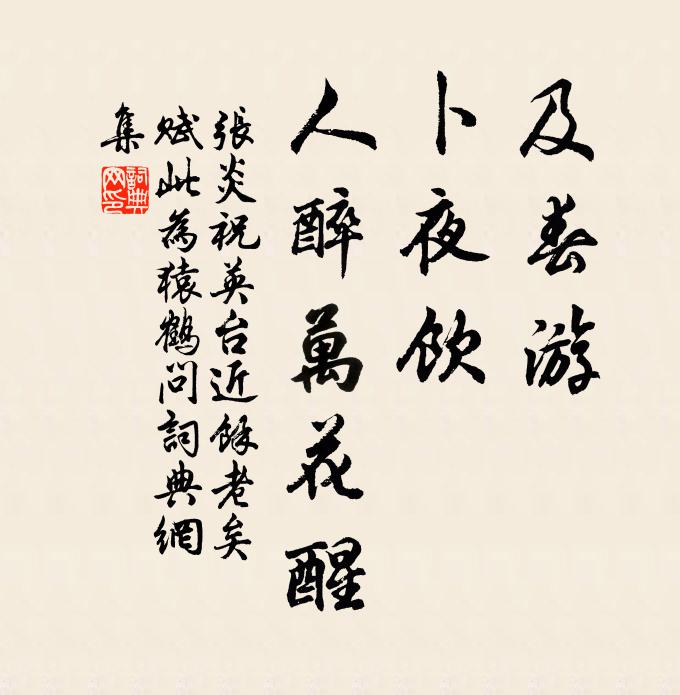 及春游
卜夜飲
人醉萬花醒
張炎祝英台近餘老矣
賦此為猿鶴問詞典網
集
詞典
网印